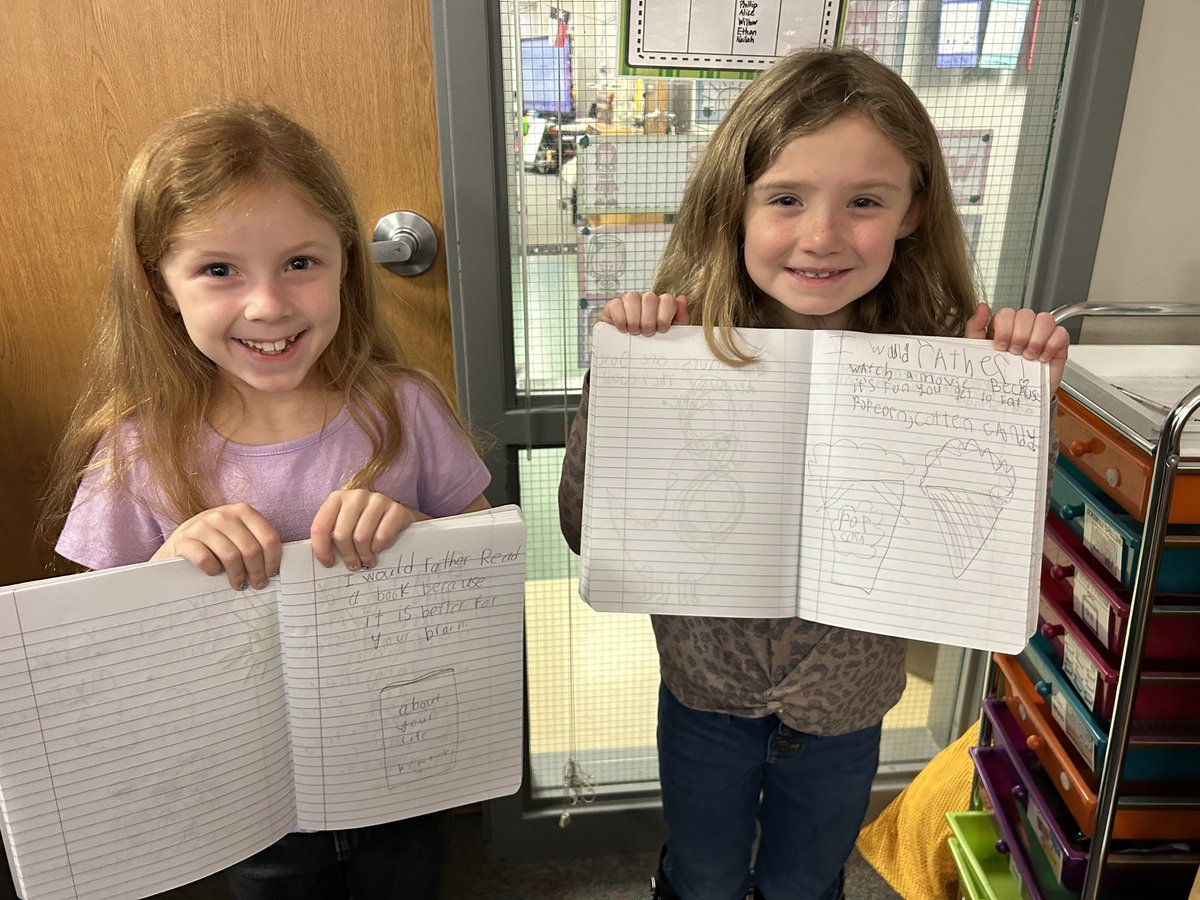 Phillip
Alice
Willow
Ethan
Nailah
I would rather Read
a book because
it is better for
your brain.
about
your
life
I would rather
watch a movie Because
it's fun you get to Eat
Popcorn, cotten candy.
Pop
corn